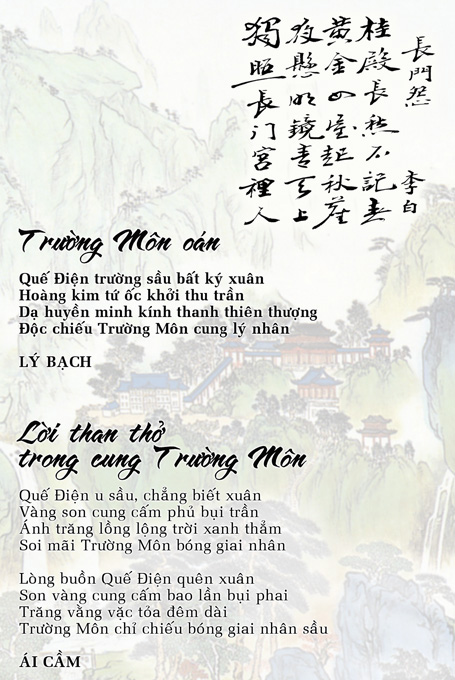 長門怨
李白
桂殿長愁不記春
黃金四屋起秋塵
夜懸明鏡青天上
獨照長门宮裡人
Trường Môn oán
Quế Điện trường sầu bất ký xuân
Hoàng kim tứ ốc khởi thu trần
Dạ huyền minh kính thanh thiên thượng
Độc chiếu Trường Môn cung lý nhân
LÝ BẠCH
Lời than thở
trong cung Trường Môn
Quế Điện u sầu, chẳng biết xuân
Vàng son cung cấm phủ bụi trần
Ánh trăng lồng lộng trời xanh thẳm
Soi mãi Trường Môn bóng giai nhân
Lòng buồn Quế Điện quên xuân
Son vàng cung cấm bao lần bụi phai
Trăng vằng vặc tỏa đêm dài
Trường Môn chỉ chiếu bóng giai nhân sầu
ÁI CẦM